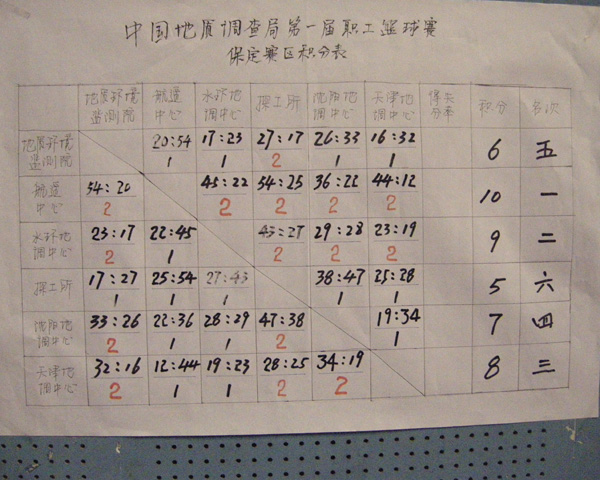 中国地质调查局第一届职工篮球赛
保定赛区积分表
地质环境监测院 航遥中心 水环地调中心 探工所 沈阳地调中心 天津地调中心 得失分率 积分 名次
地质环境监测院 20:54 17:23 27:17 26:33 16:32 6 五
1 1 2 1 1
航遥中心 54:20 45:22 54:25 36:22 44:12 10 一
2 2 2 2 2
水环地调中心 23:17 22:45 43:27 29:28 23:19 9 二
2 1 2 2 2
探工所 17:27 25:54 27:43 38:47 25:28 5 六
1 1 1 1 1
沈阳地调中心 33:26 22:36 28:29 47:38 19:34 7 四
2 1 1 2 1
天津地调中心 32:16 12:44 19:23 28:25 34:19 8 三
2 1 1 2 2